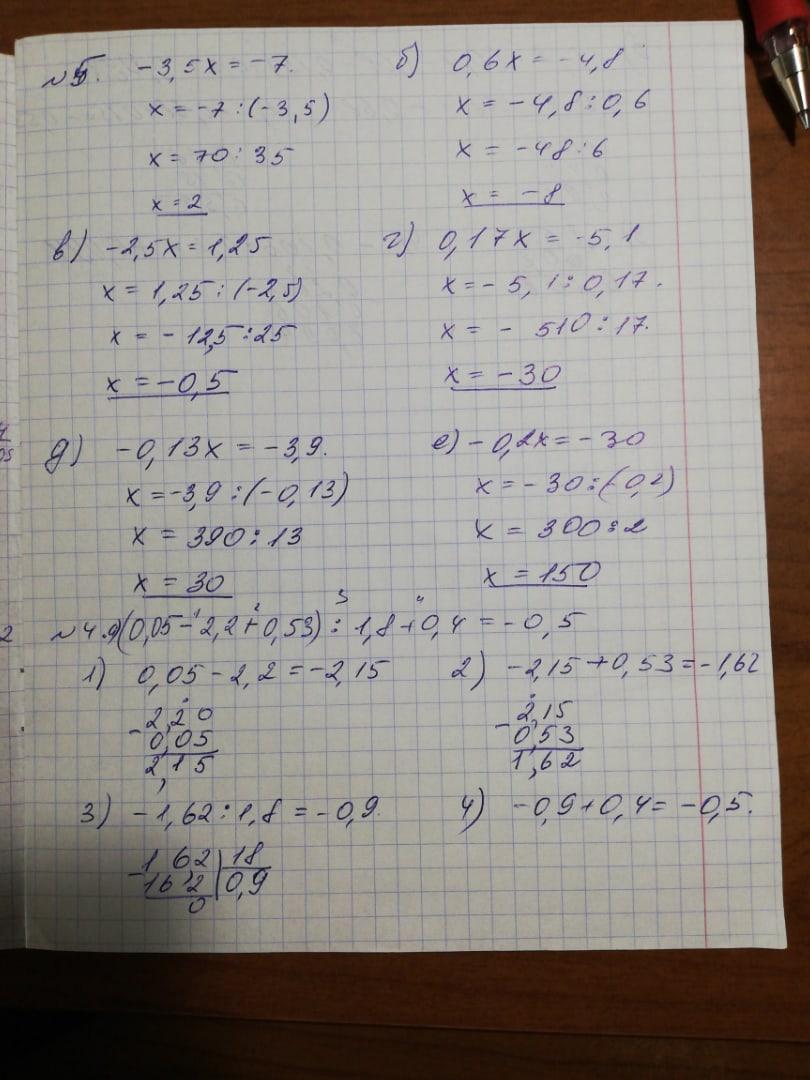 №5. -3,5x = -7.
x = -7 : (-3,5)
x = 70 : 35
x = 2
б) 0,6x = -4,8
x = -4,8 : 0,6
x = -48 : 6
x = -8
в) -2,5x = 1,25
x = 1,25 : (-2,5)
x = -12,5 : 25
x = -0,5
г) 0,17x = -5,1
x = -5,1 : 0,17.
x = - 510 : 17.
x = -30
д) -0,13x = -3,9.
x = -3,9 : (-0,13)
x = 390 : 13
x = 30
е) -0,2x = -30
x = -30 : (-0,2)
x = 300 : 2
x = 150
1 2 3 4
(0,05 - 2,2 + 0,53) : 1,8 + 0,4 = -0,5
1) 0,05 - 2,2 = -2,15
- 2,20
0,05
2,15
2) -2,15 + 0,53 = -1,62
- 2,15
0,53
1,62
3) -1,62 : 1,8 = -0,9.
- 1 62 | 18
16 2 | 0,9
0
4) -0,9 + 0,4 = -0,5.